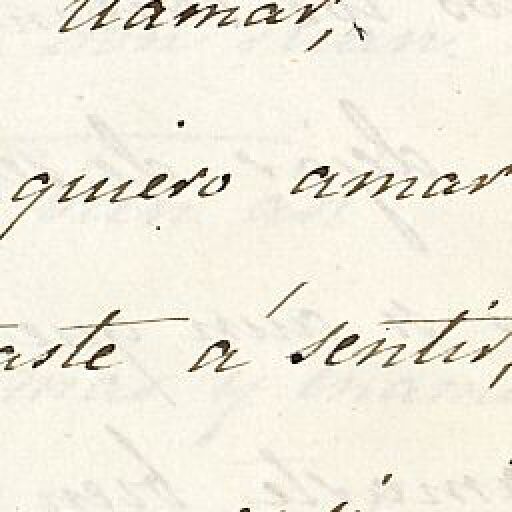 llamar,
quiero amar
aste á sentir,